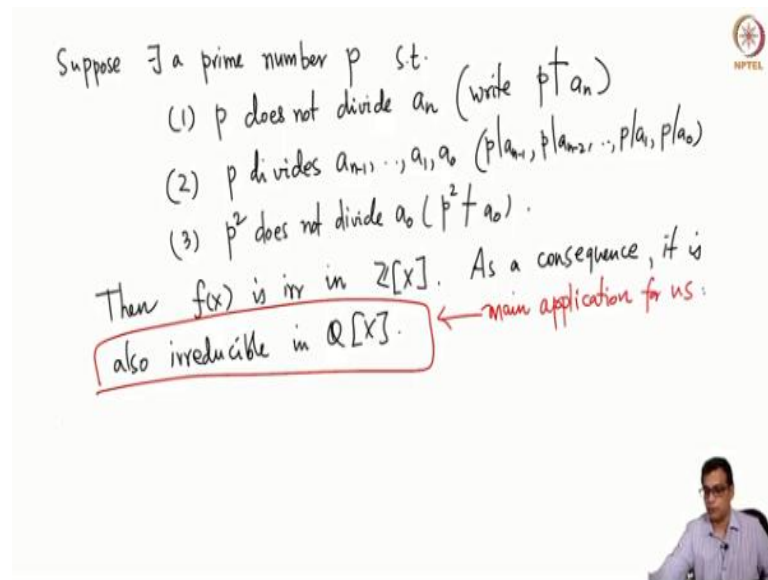 Suppose ∃ a prime number p s.t.
(1) p does not divide aₙ (write p∤aₙ)
(2) p divides aₙ₋₁, .., a₁, a₀ (p|aₙ₋₁, p|aₙ₋₂, .., p|a₁, p|a₀)
(3) p² does not divide a₀ (p²∤a₀).
Then f(x) is irr in ℤ[X]. As a consequence, it is
also irreducible in Q[X]. ← main application for us:
NPTEL